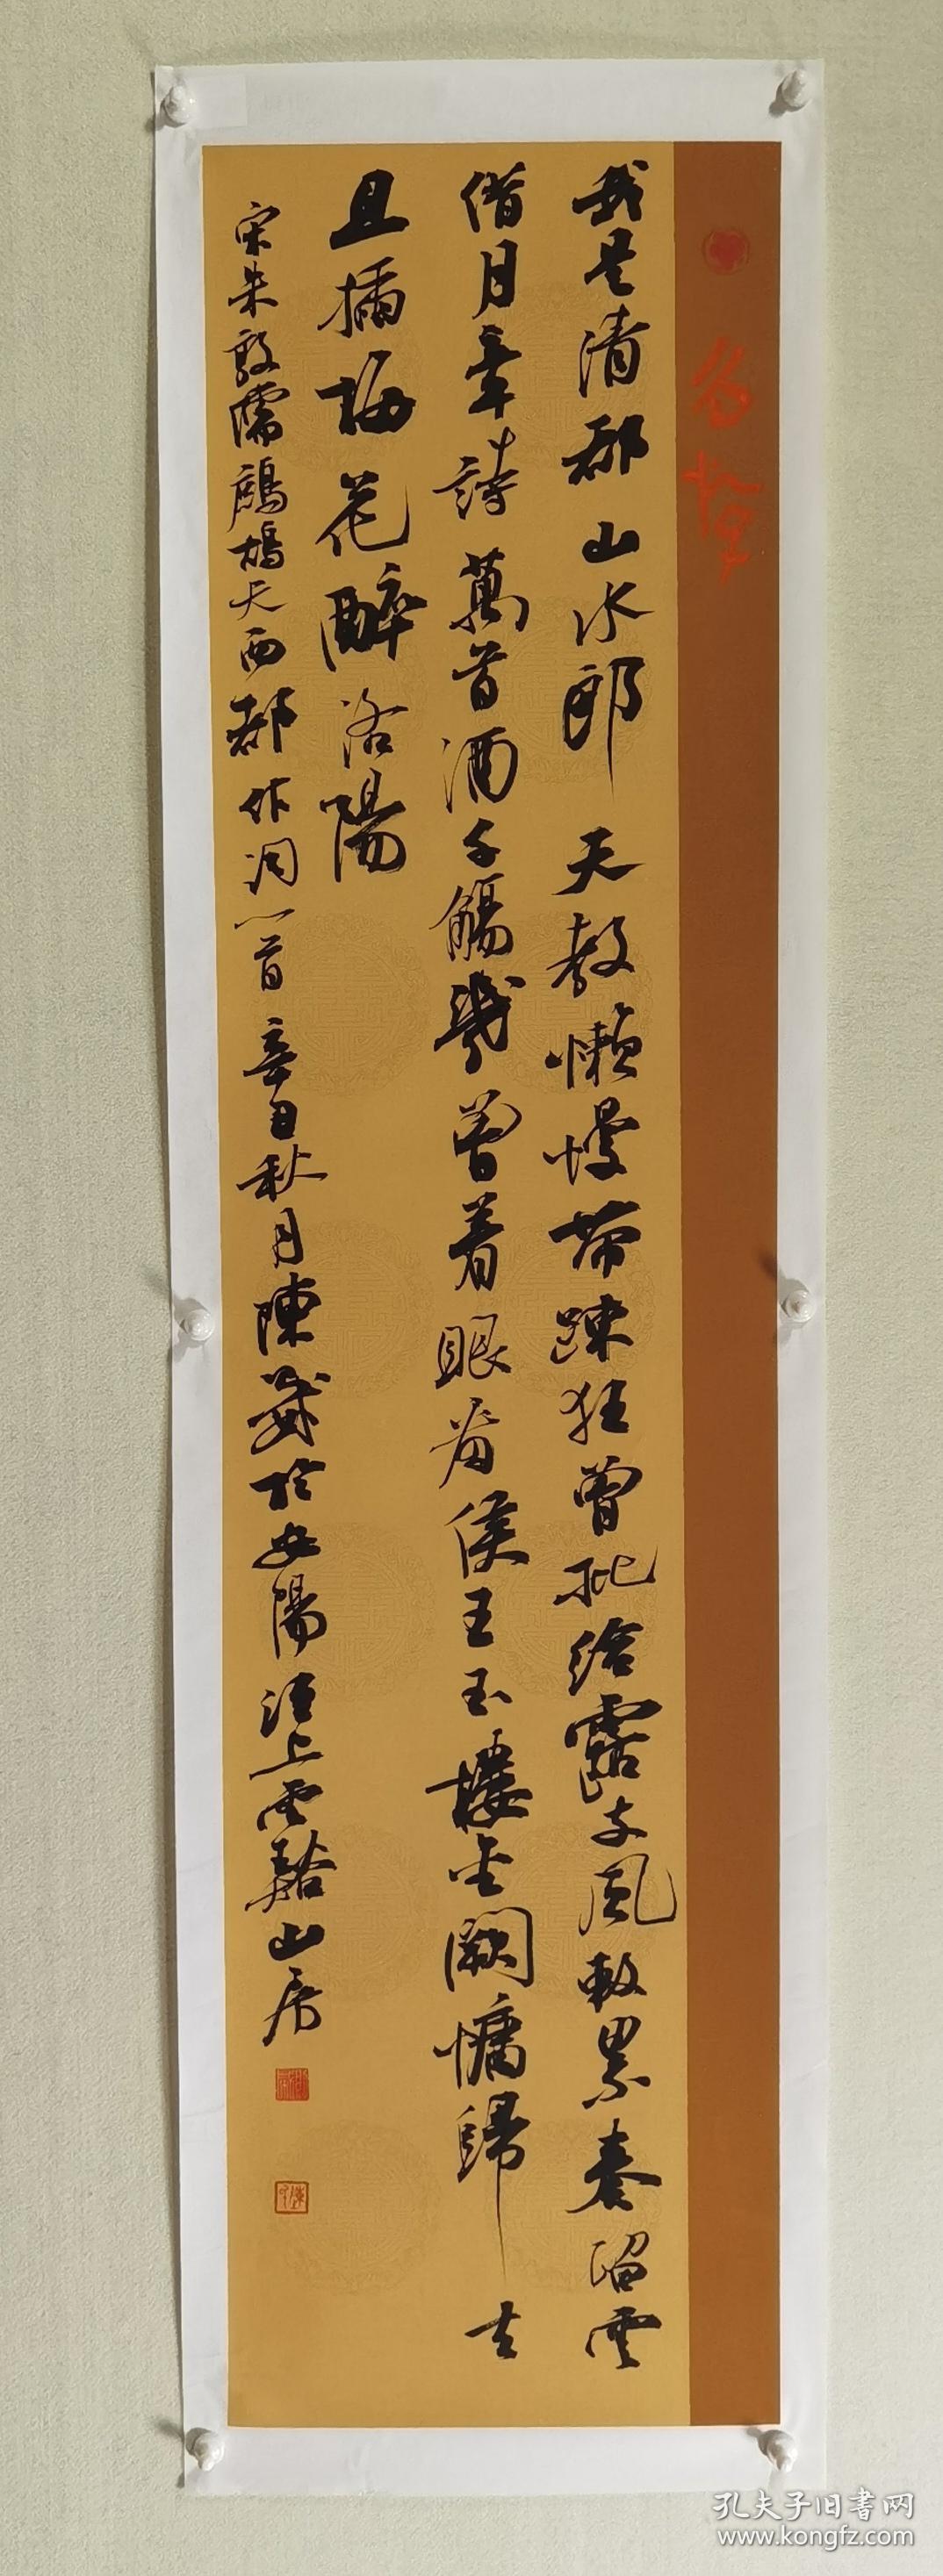 我是清都山水郎天教懶慢帶疎狂曾批給露支風敕累奏留雲
借月章詩萬首酒千觴幾曾着眼看侯王玉樓金闕慵歸去
且插梅花醉洛陽
宋朱敦儒鷓鴣天西都作词一首辛丑秋月陳於安陽洹上雲谿山房
孔夫子旧书网
www.kongfz.com